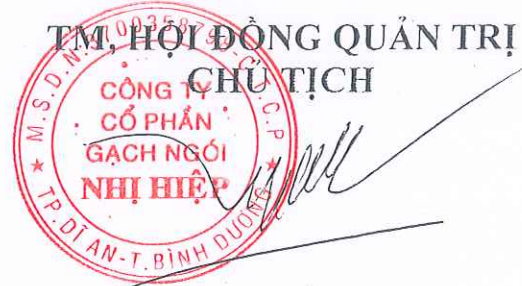 TM, HỘI ĐỒNG QUẢN TRỊ
CHỦ TỊCH
CÔNG TY
CỔ PHẦN
GẠCH NGÓI
NHỊ HIỆP
★ TP.DĨ AN-T.BÌNH DUƠNG ★